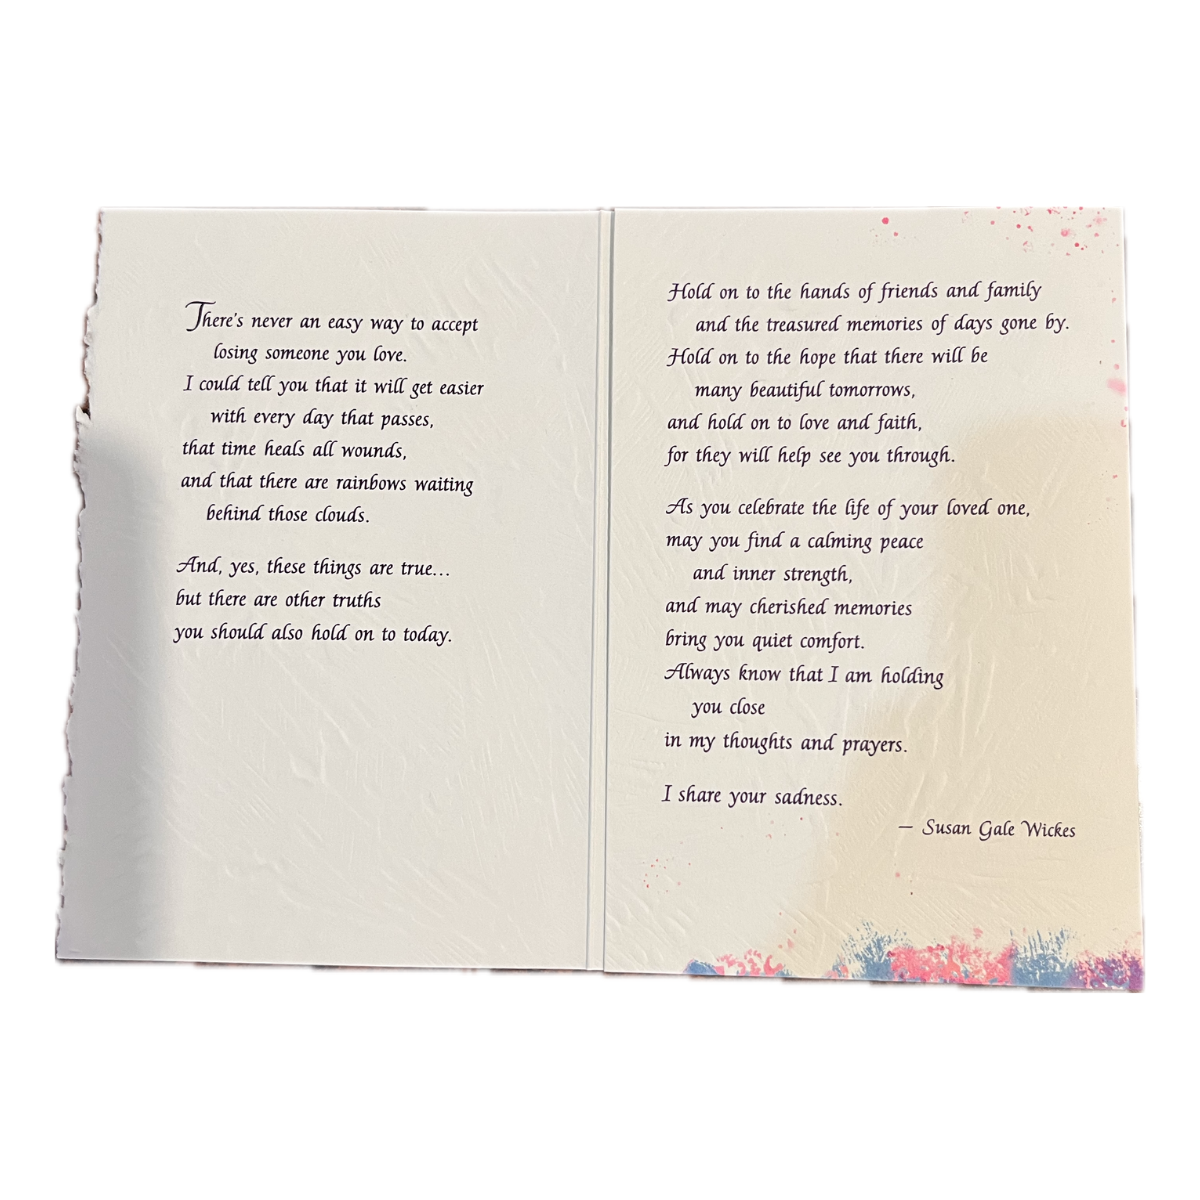 There's never an easy way to accept
losing someone you love.
I could tell you that it will get easier
with every day that passes,
that time heals all wounds,
and that there are rainbows waiting
behind those clouds.
And, yes, these things are true...
but there are other truths
you should also hold on to today.
Hold on to the hands of friends and family
and the treasured memories of days gone by.
Hold on to the hope that there will be
many beautiful tomorrows,
and hold on to love and faith,
for they will help see you through.
As you celebrate the life of your loved one,
may you find a calming peace
and inner strength,
and may cherished memories
bring you quiet comfort.
Always know that I am holding
you close
in my thoughts and prayers.
I share your sadness.
— Susan Gale Wickes